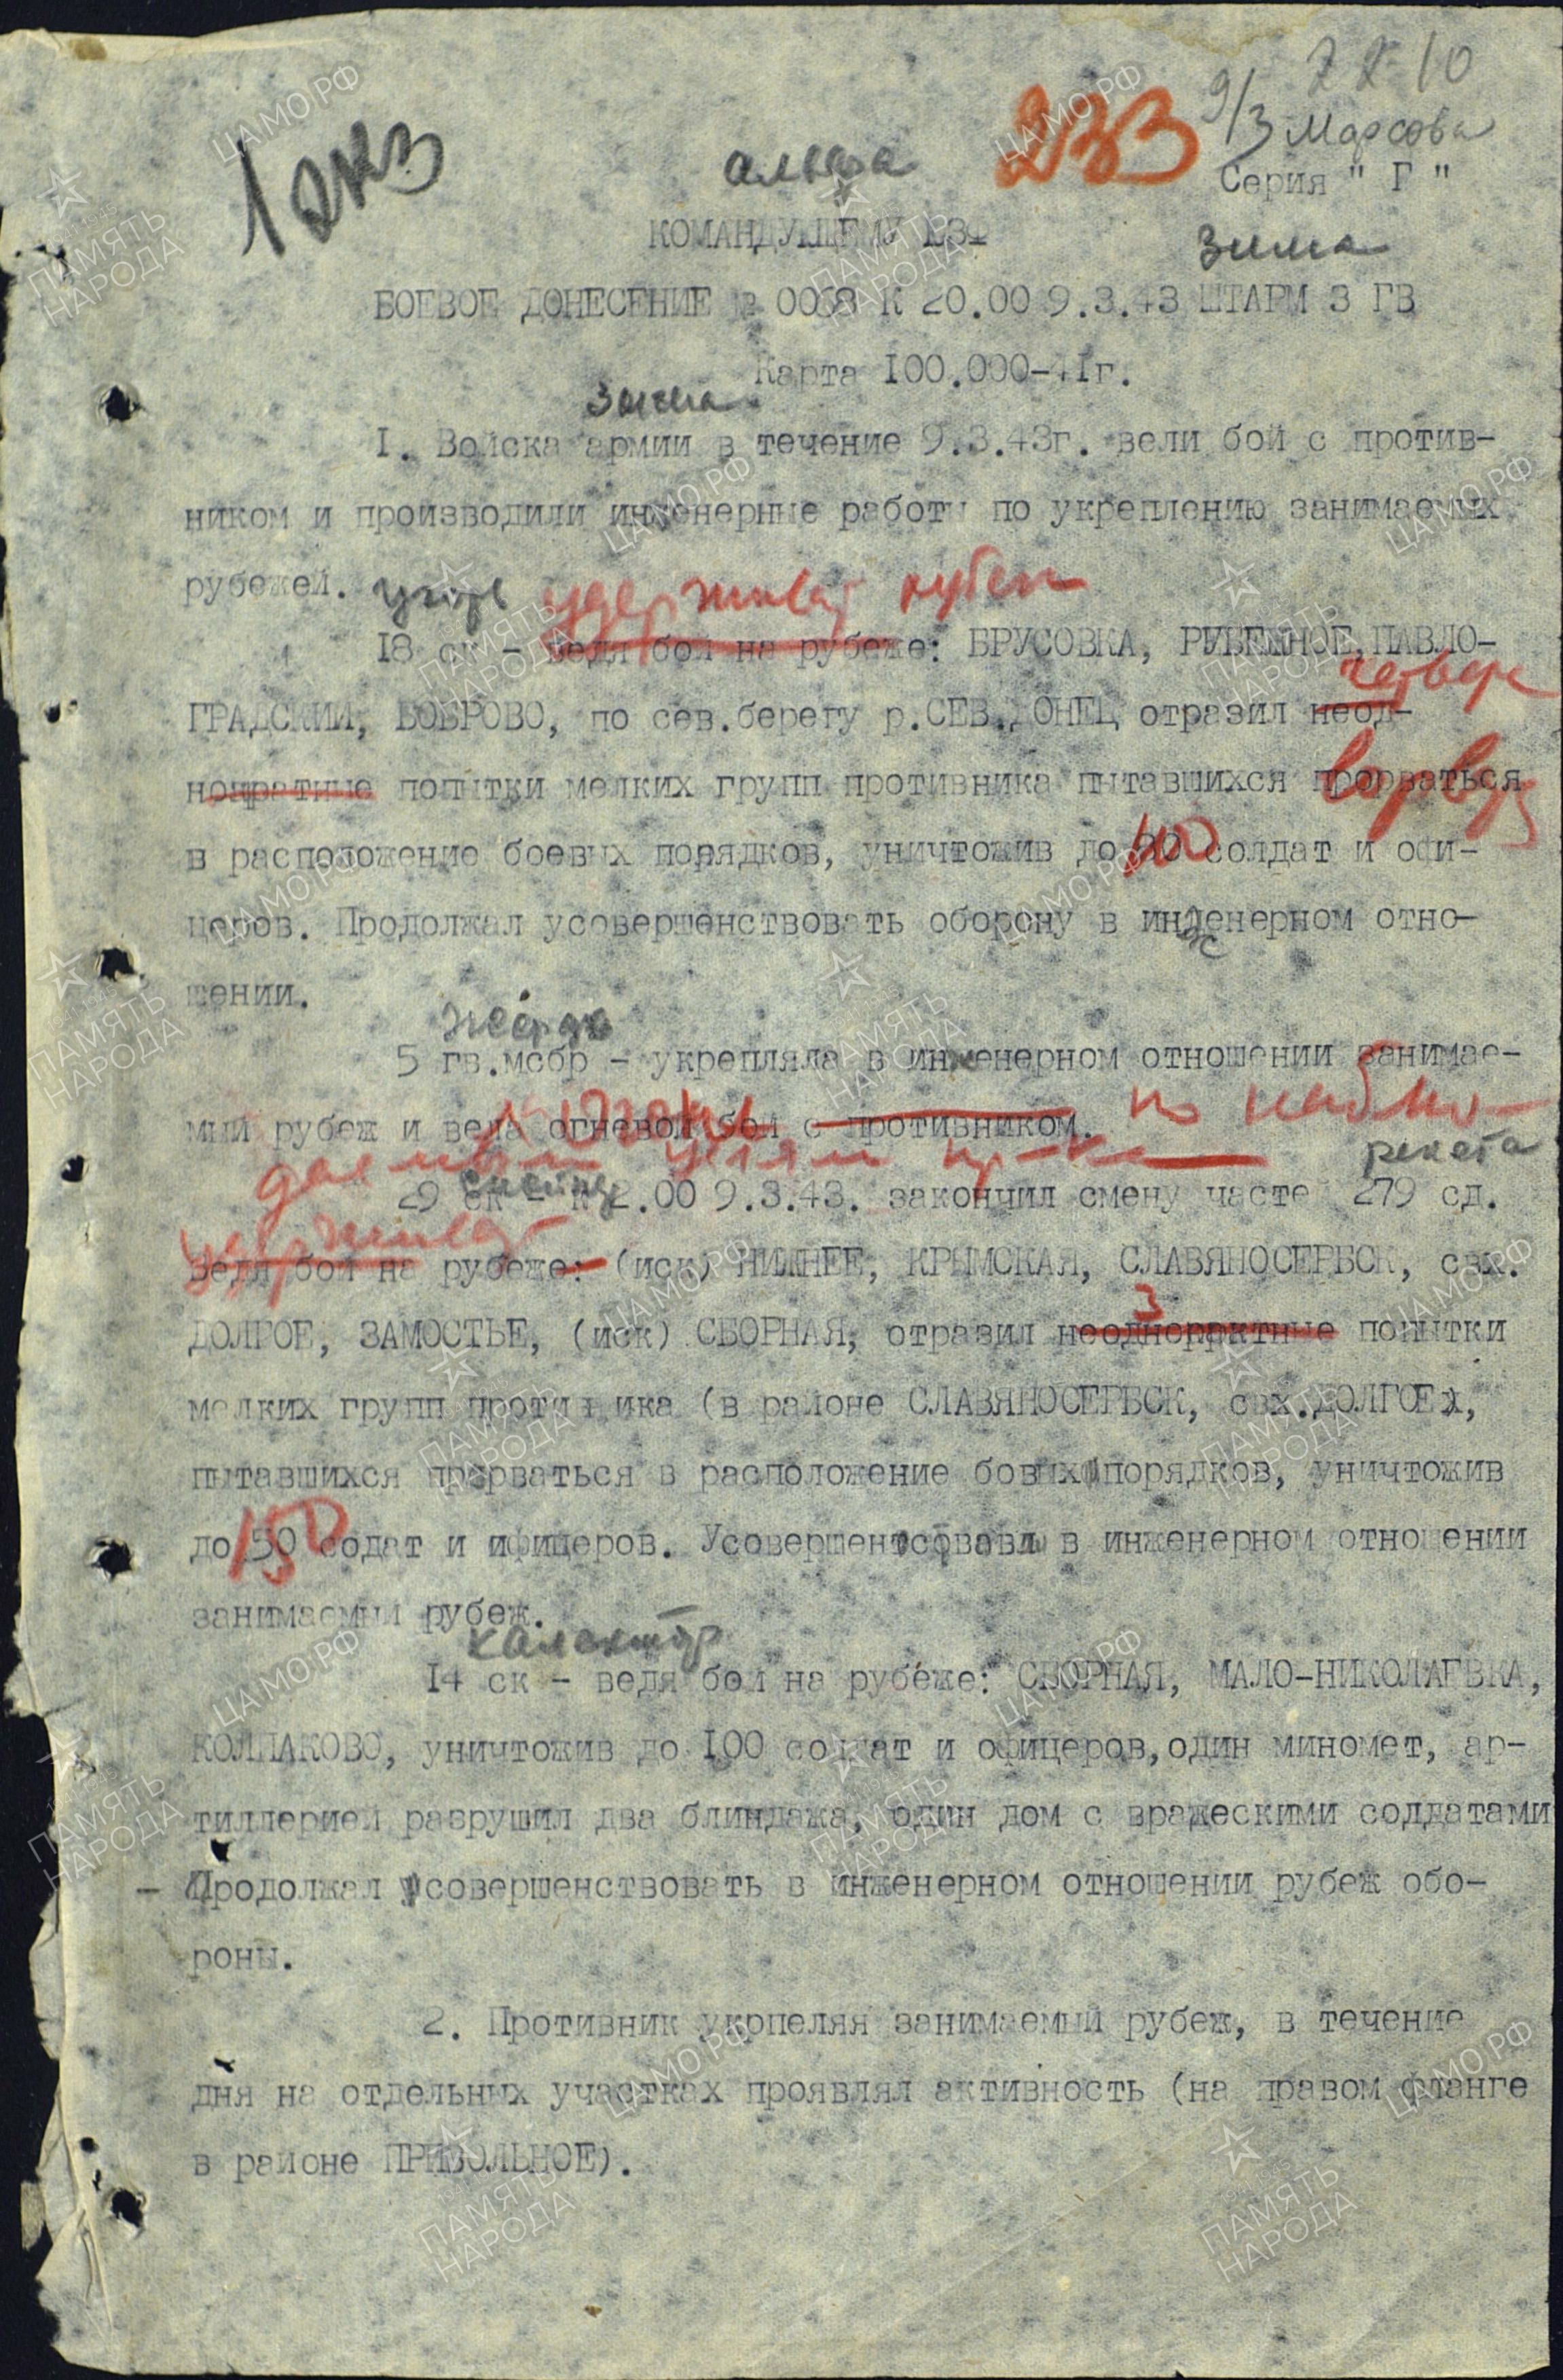 1 экз
233
9/3 Марсова
Серия " Г "
КОМАНДУЮЩЕМУ ЮЗФ
зима
БОЕВОЕ ДОНЕСЕНИЕ 0068 К 20.00 9.3.43 ШТАРМ 3 ГВ
Карта 100.000-41г.
зима
1. Войска армии в течение 9.3.43г. вели бой с против-
ником и производили инженерные работы по укреплению занимаемых
рубежей. удерживая рубеж
18 ск - ведя бой на рубеже: БРУСОВКА, РУБЕЖНОЕ, ПАВЛО-
ГРАДСКИЙ, БОБРОВО, по сев.берегу р.СЕВ.ДОНЕЦ отразил неод-
нократные попытки мелких групп противника пытавшихся прорваться
в расположение боевых порядков, уничтожив до солдат и офи-
церов. Продолжал усовершенствовать оборону в инженерном отно-
шении.
5 гв.мсбр - укрепляла в инженерном отношении занимае-
мый рубеж и вела огневой бой с противником. по наблю-
даемым целям пр-ка ракета
29 ск - к 2.00 9.3.43. закончил смену частей 279 сд.
удерживая
ведя бой на рубеже: (иск) НИЖНЕЕ, КРЫМСКАЯ, СЛАВЯНОСЕРБСК, свх.
3
ДОЛГОЕ, ЗАМОСТЬЕ, (иск) СБОРНАЯ, отразил неоднорактные попытки
мелких групп противника (в районе СЛАВЯНОСЕРБСК, свх.ДОЛГОЕ),
пытавшихся прорваться в расположение бовых порядков, уничтожив
до 150 содат и офицеров. в инженерном отношении
занимаемый рубеж.
14 ск - ведя бой на рубеже: СБОРНАЯ, МАЛО-НИКОЛАЕВКА,
КОЛПАКОВО, уничтожив до 100 солдат и офицеров, один миномет, ар-
тиллерией разрушил два блиндажа, один дом с вражескими солдатами
- Продолжал усовершенствовать в инженерном отношении рубеж обо-
роны.
2. Противник укрпеляя занимаемый рубеж, в течение
дня на отдельных участках проявлял активность (на правом фланге
в районе ПРИВОЛЬНОЕ).